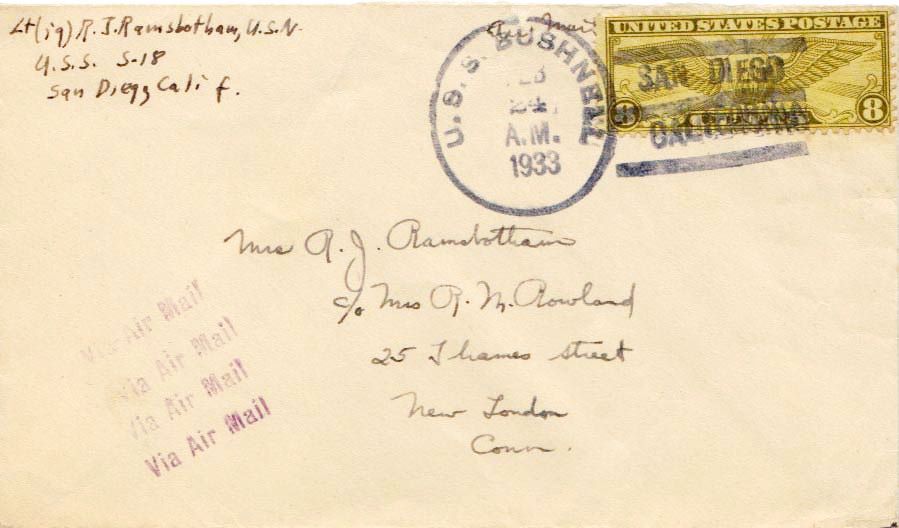 Lt(jg) R. J. Ramsbotham, U.S.N.
U.S.S. S-18
San Diego, Calif.
Air Mail
UNITED STATES POSTAGE
8 8
U.S.S. BUSHNELL
FEB
24
A.M.
1933
SAN DIEGO
CALIFORNIA
Mrs R. J. Ramsbotham
c/o Mrs R. M. Rowland
25 Thames Street
New London
Conn.
Via Air Mail
Via Air Mail
Via Air Mail
Via Air Mail